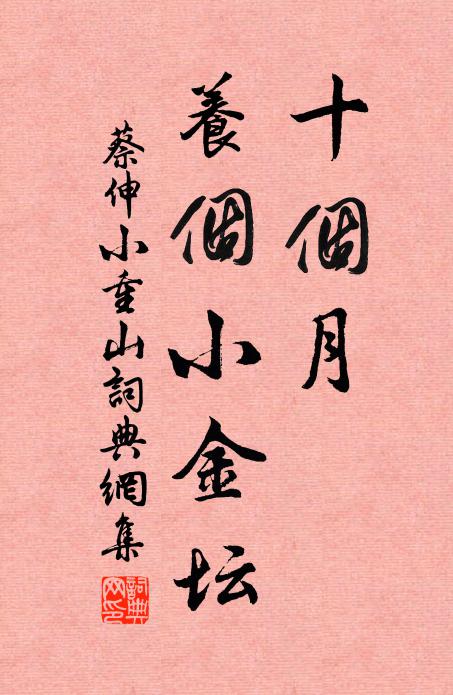 十個月
養個小金坛
蔡伸小重山詞典網集
詞典網印